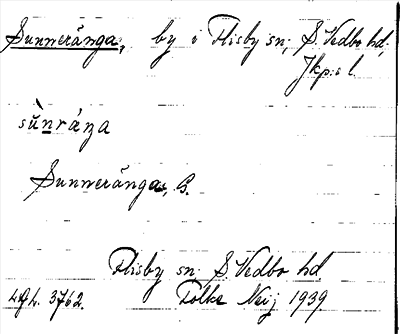 Sunneränga, by i Flisby sn, S. Vedbo hd,
Jkp:s l.
sùnráŋa
Sunneränga, G.
Flisby sn. S. Vedbo hd
3762. Folke 1939